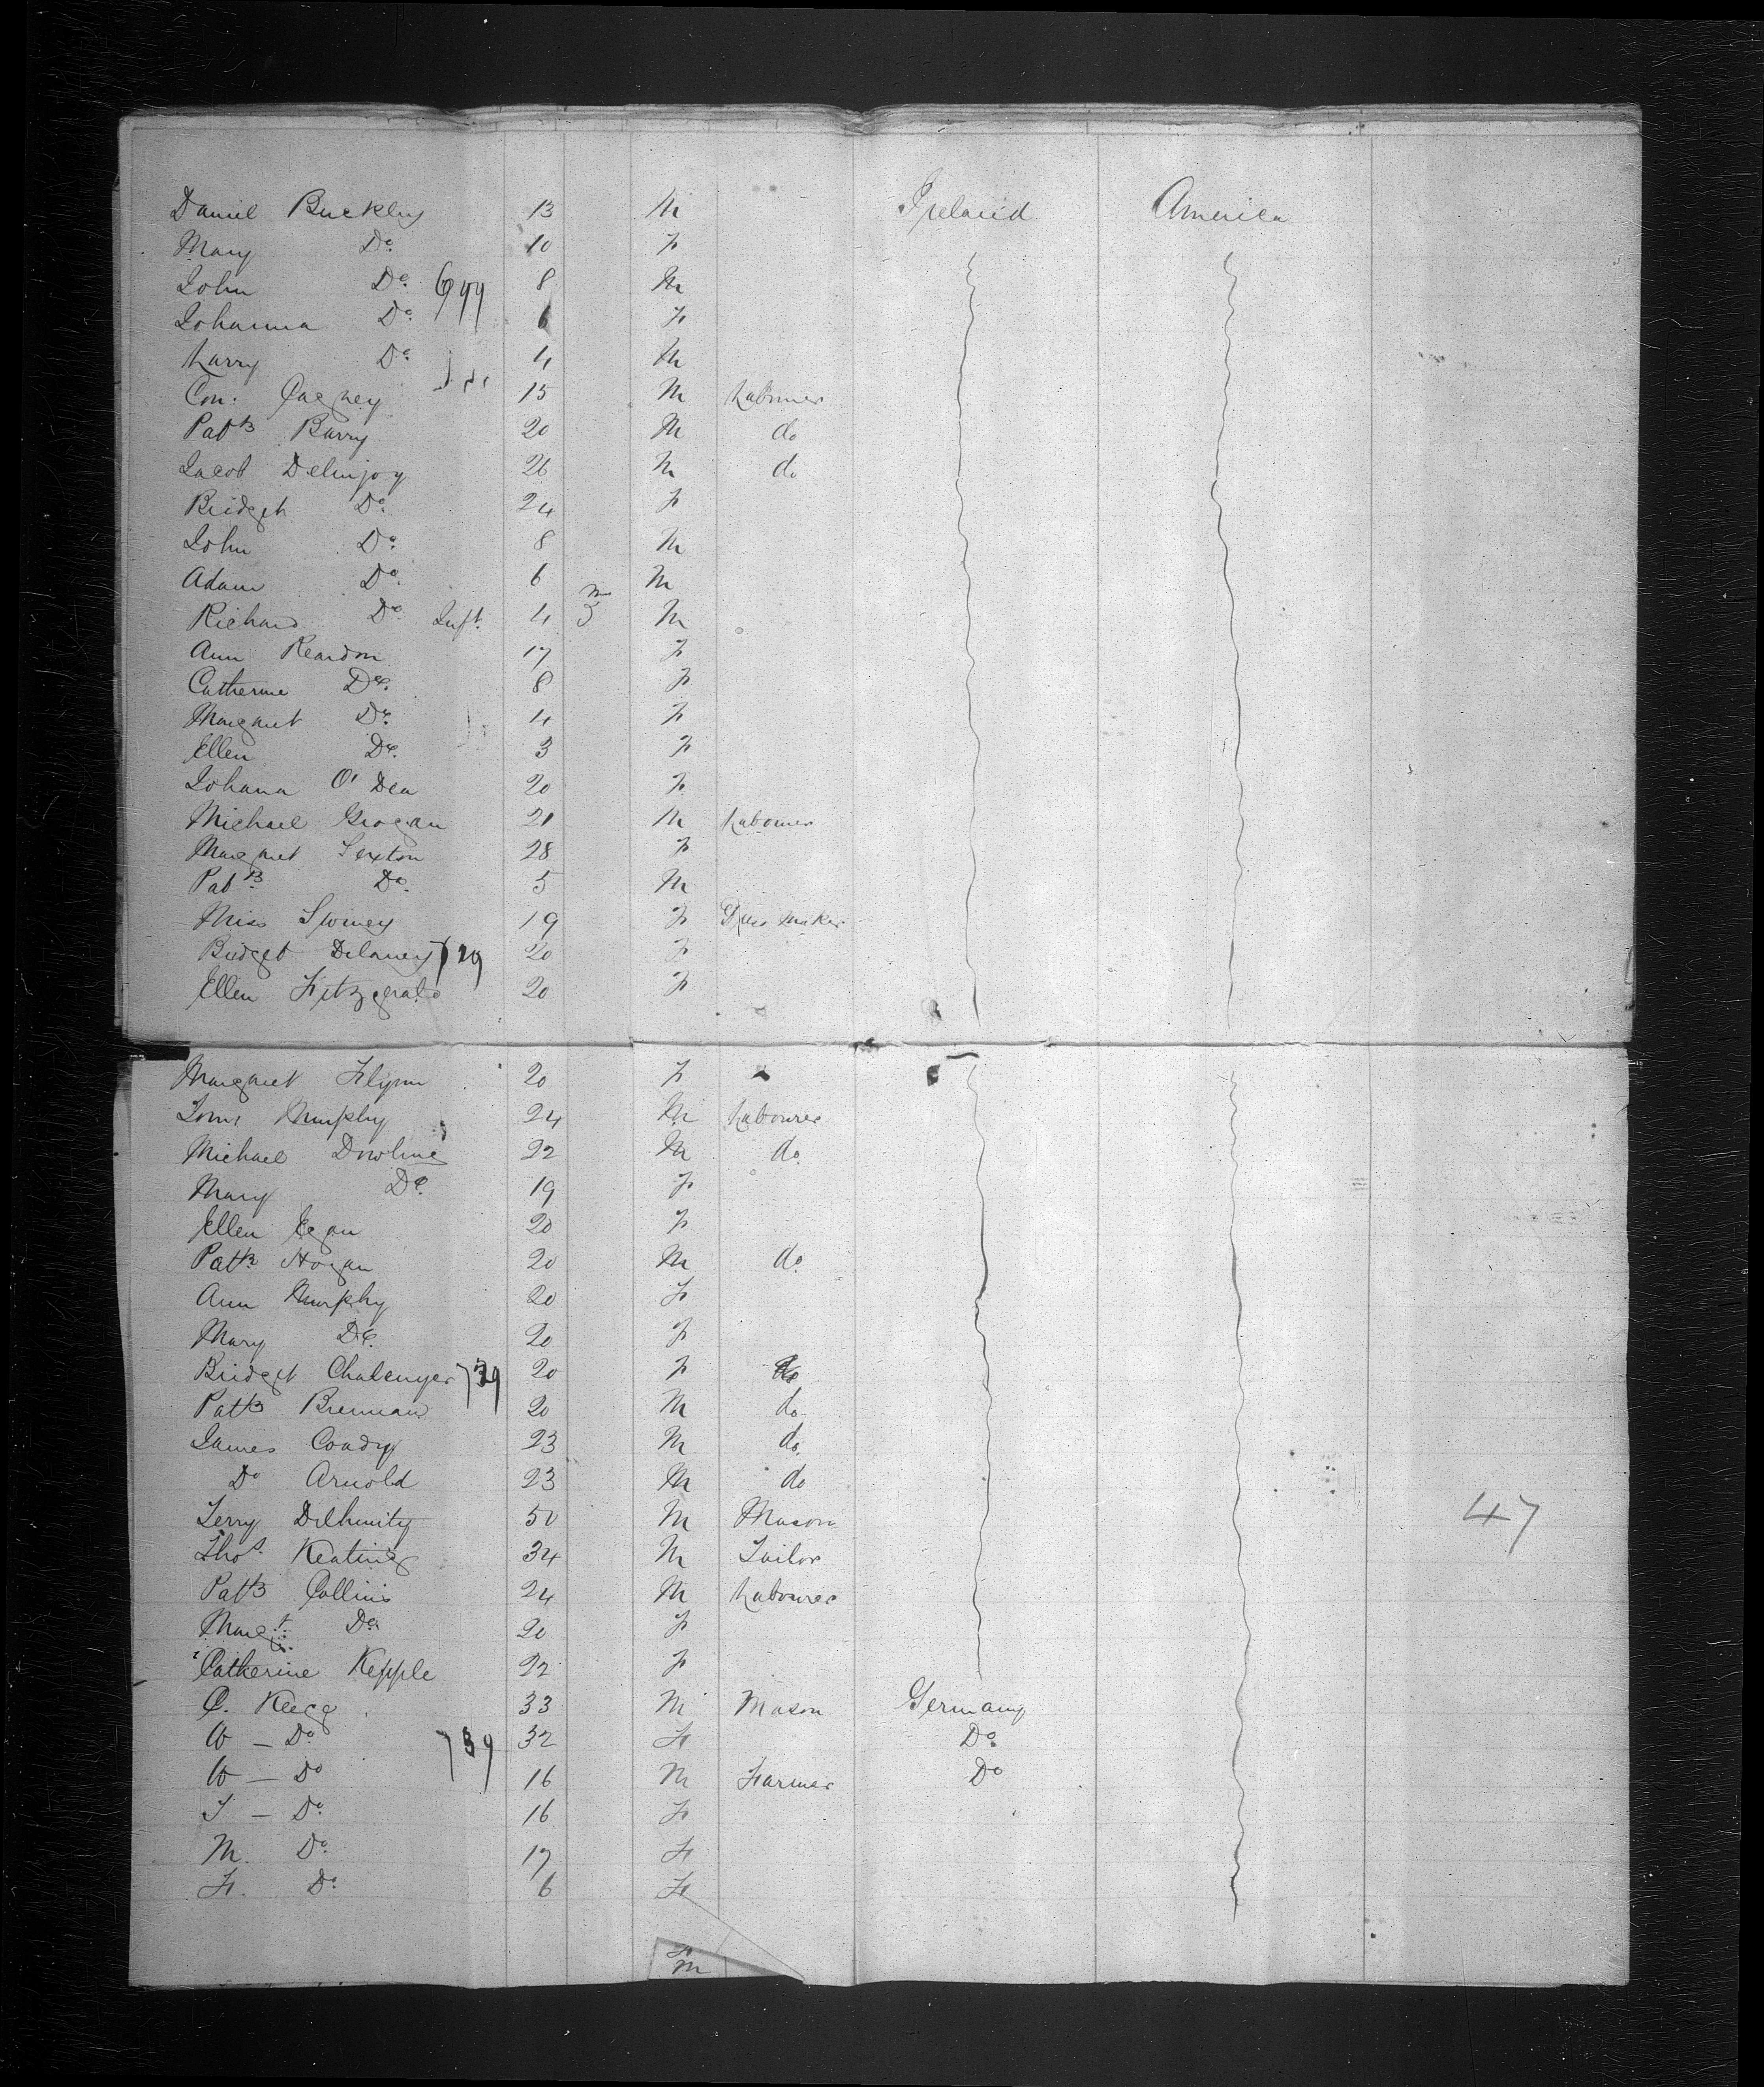 Daniel Buckley 13 M Ireland America
Mary Do. 10 F
John Do. 699 8 M
Johanna Do. 6 F
Larry Do. 4 M
Con. Cagney 15 M Labourer
Patk Barry 20 M do
Jacob 26 M do
Bridget Do. 24 F
John Do. 8 M
Adam Do. 6 M
Richard Do. Inft. 4 M
Ann Reardon 17 F
Catherine Do. 8 F
Margaret Do. 4 F
Ellen Do. 3 F
Johana O'Dea 20 F
Michael Grogan 21 M Labourer
Margaret Sexton 28 F
Patk. Do. 5 M
Miss Swiney 19 F Dress maker
Bridget Delaney 719 20 F
Ellen Fitzgerald 20 F
Margaret Flynn 20 F
Murphy 24 M Labourer
Michael Dowling 22 M do.
Mary Do. 19 F
Ellen Egan 20 F
Patk Hogan 20 M do.
Ann Murphy 20 F
Mary Do. 20 F
Bridget Chalenger 20 F
Patk Brennan 20 M do.
James Coady 23 M do.
Do Arnold 23 M do
Terry 50 M Mason
Thos. Keating 34 M Tailor
Patk Collins 24 M Labourer
Margt. Do. 20 F
Catherine Kepple 22 F
C. 33 M Mason Germany
W - Do. 739 32 F Do.
W - Do 16 M Farmer Do
- Do. 16 F
M. Do. 17 F
F. Do. 6 F
47
F
M